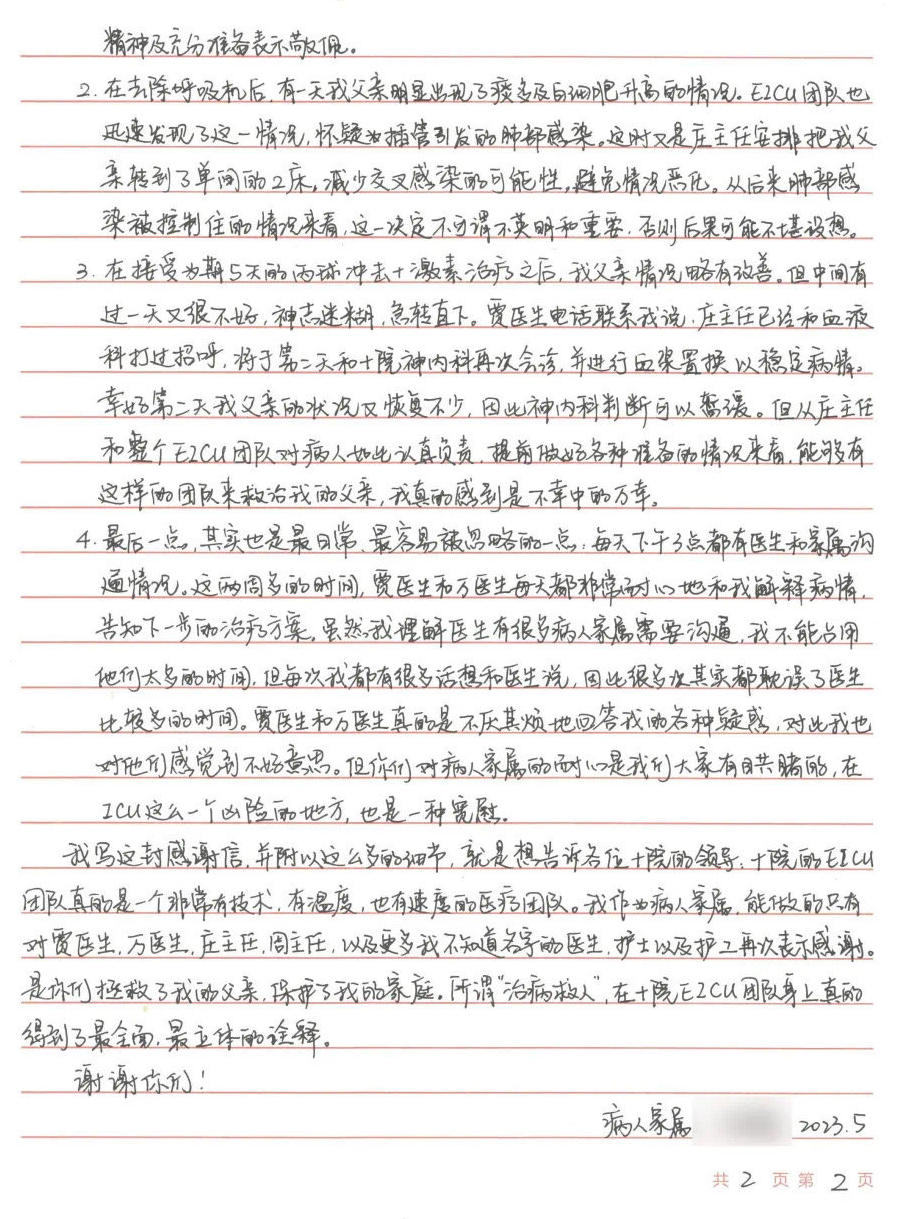 精神及充分准备表示敬佩。
2. 在去除呼吸机后,有一天我父亲明显出现了痰多及白细胞升高的情况。EICU团队也
迅速发现了这一情况,怀疑为插管引发的肺部感染。这时又是庄主任安排把我父
亲转到了单间的2床,减少交叉感染的可能性,避免情况恶化。从后来肺部感
染被控制住的情况来看,这一决定不可谓不英明和重要,否则后果可能不堪设想。
3. 在接受为期5天的丙球冲击+激素治疗之后,我父亲情况略有改善。但中间有
过一天又很不好,神志迷糊,急转直下。贾医生电话联系我说,庄主任已经和血液
科打过招呼,将于第二天和十院神内科再次会诊,并进行血浆置换以稳定病情。
幸好第二天我父亲的状况又恢复不少,因此神内科判断可以暂缓。但从庄主任
和整个EICU团队对病人如此认真负责,提前做好各种准备的情况来看,能够有
这样的团队来救治我的父亲,我真的感到是不幸中的万幸。
4. 最后一点,其实也是最日常、最容易被忽略的一点:每天下午3点都有医生和家属沟
通情况。这两周多的时间,贾医生和万医生每天都非常耐心地和我解释病情,
告知下一步的治疗方案。虽然我理解医生有很多病人家属需要沟通,我不能占用
他们太多的时间,但每次我都有很多话想和医生说,因此很多次其实都耽误了医生
比较多的时间。贾医生和万医生真的是不厌其烦地回答我的各种疑惑,对此我也
对他们感觉到不好意思。但你们对病人家属的耐心是我们大家有目共睹的,在
ICU这么一个凶险的地方,也是一种宽慰。
我写这封感谢信,并附以这么多的细节,就是想告诉各位十院的领导,十院的EICU
团队真的是一个非常有技术,有温度,也有速度的医疗团队。我作为病人家属,能做的只有
对贾医生,万医生,庄主任,周主任,以及更多我不知道名字的医生,护士以及护工再次表示感谢。
是你们拯救了我的父亲,保护了我的家庭。所谓“治病救人”,在十院EICU团队身上真的
得到了最全面,最立体的诠释。
谢谢你们!
病人家属 2023.5
共 2 页 第 2 页